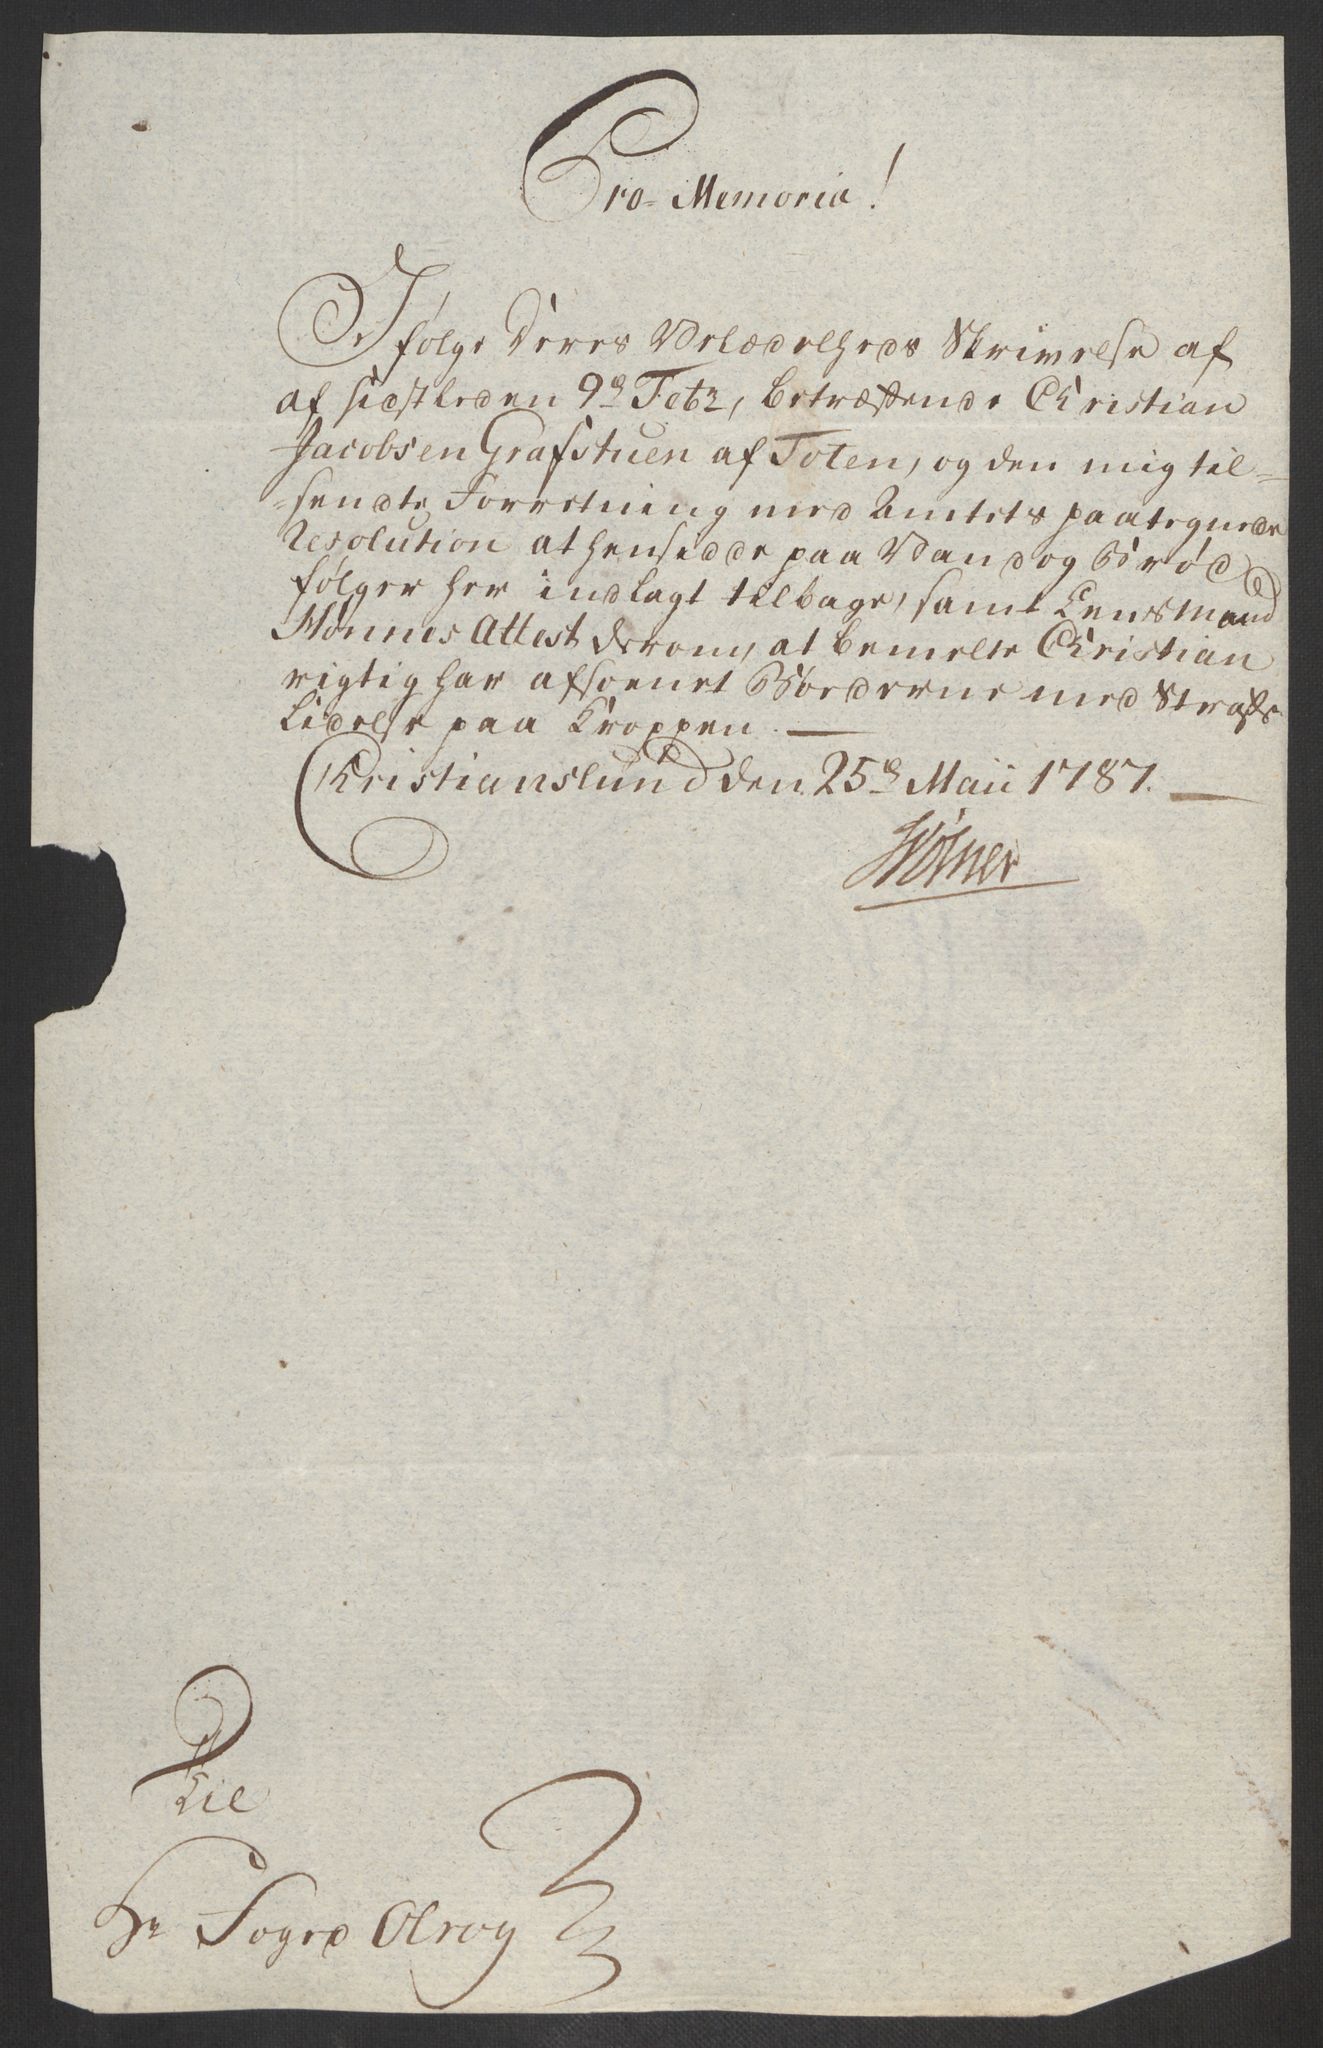 Pro-Memoria!
Ifølge Deres Velædelheds Skrivelse af
af sidstleden 9de Febr, betræffende Christian
Jacobsen Grafstuen af Toten, og den mig til-
-sendte Forretning med Amtets paategnede
Resolution at hensidde paa Vand og Brød
følger her indlagt tilbage, samt Lensmand
Mønnes Attest derom, at bemelte Christian
rigtig har afsoenet Bøederne med Straffs
Lidelse paa Kroppen. —
Christianslund den 25de Maii 1787. —
Wølner
Til
Hr Foged Olrog